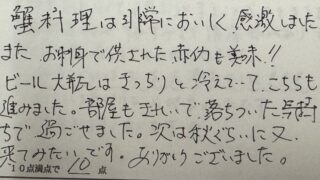 蟹料理は非常においしく感激しました
また お刺身で供された赤肉も美味!!
ビール大瓶はきっちりと冷えていて、こちらも
進みました。部屋もきれいで、落ちついた気持
ちで過ごせました。次は秋ぐらいに又
来てみたいです。ありがとうございました。
10点満点で 10 点